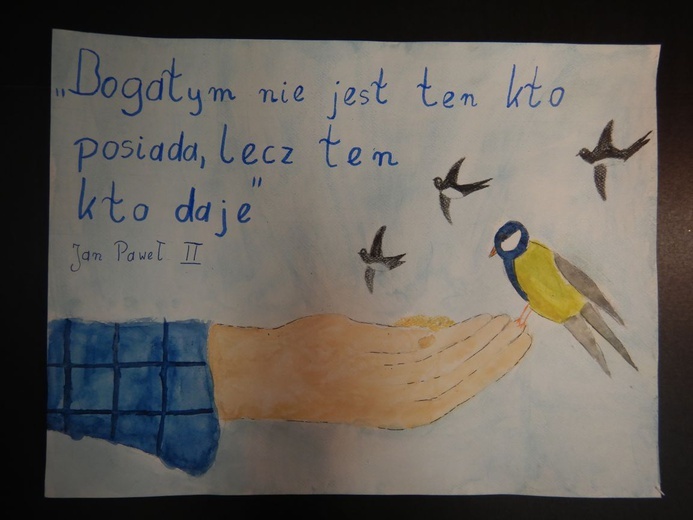 „Bogatym nie jest ten kto
posiada, lecz ten
kto daje"
Jan Paweł II